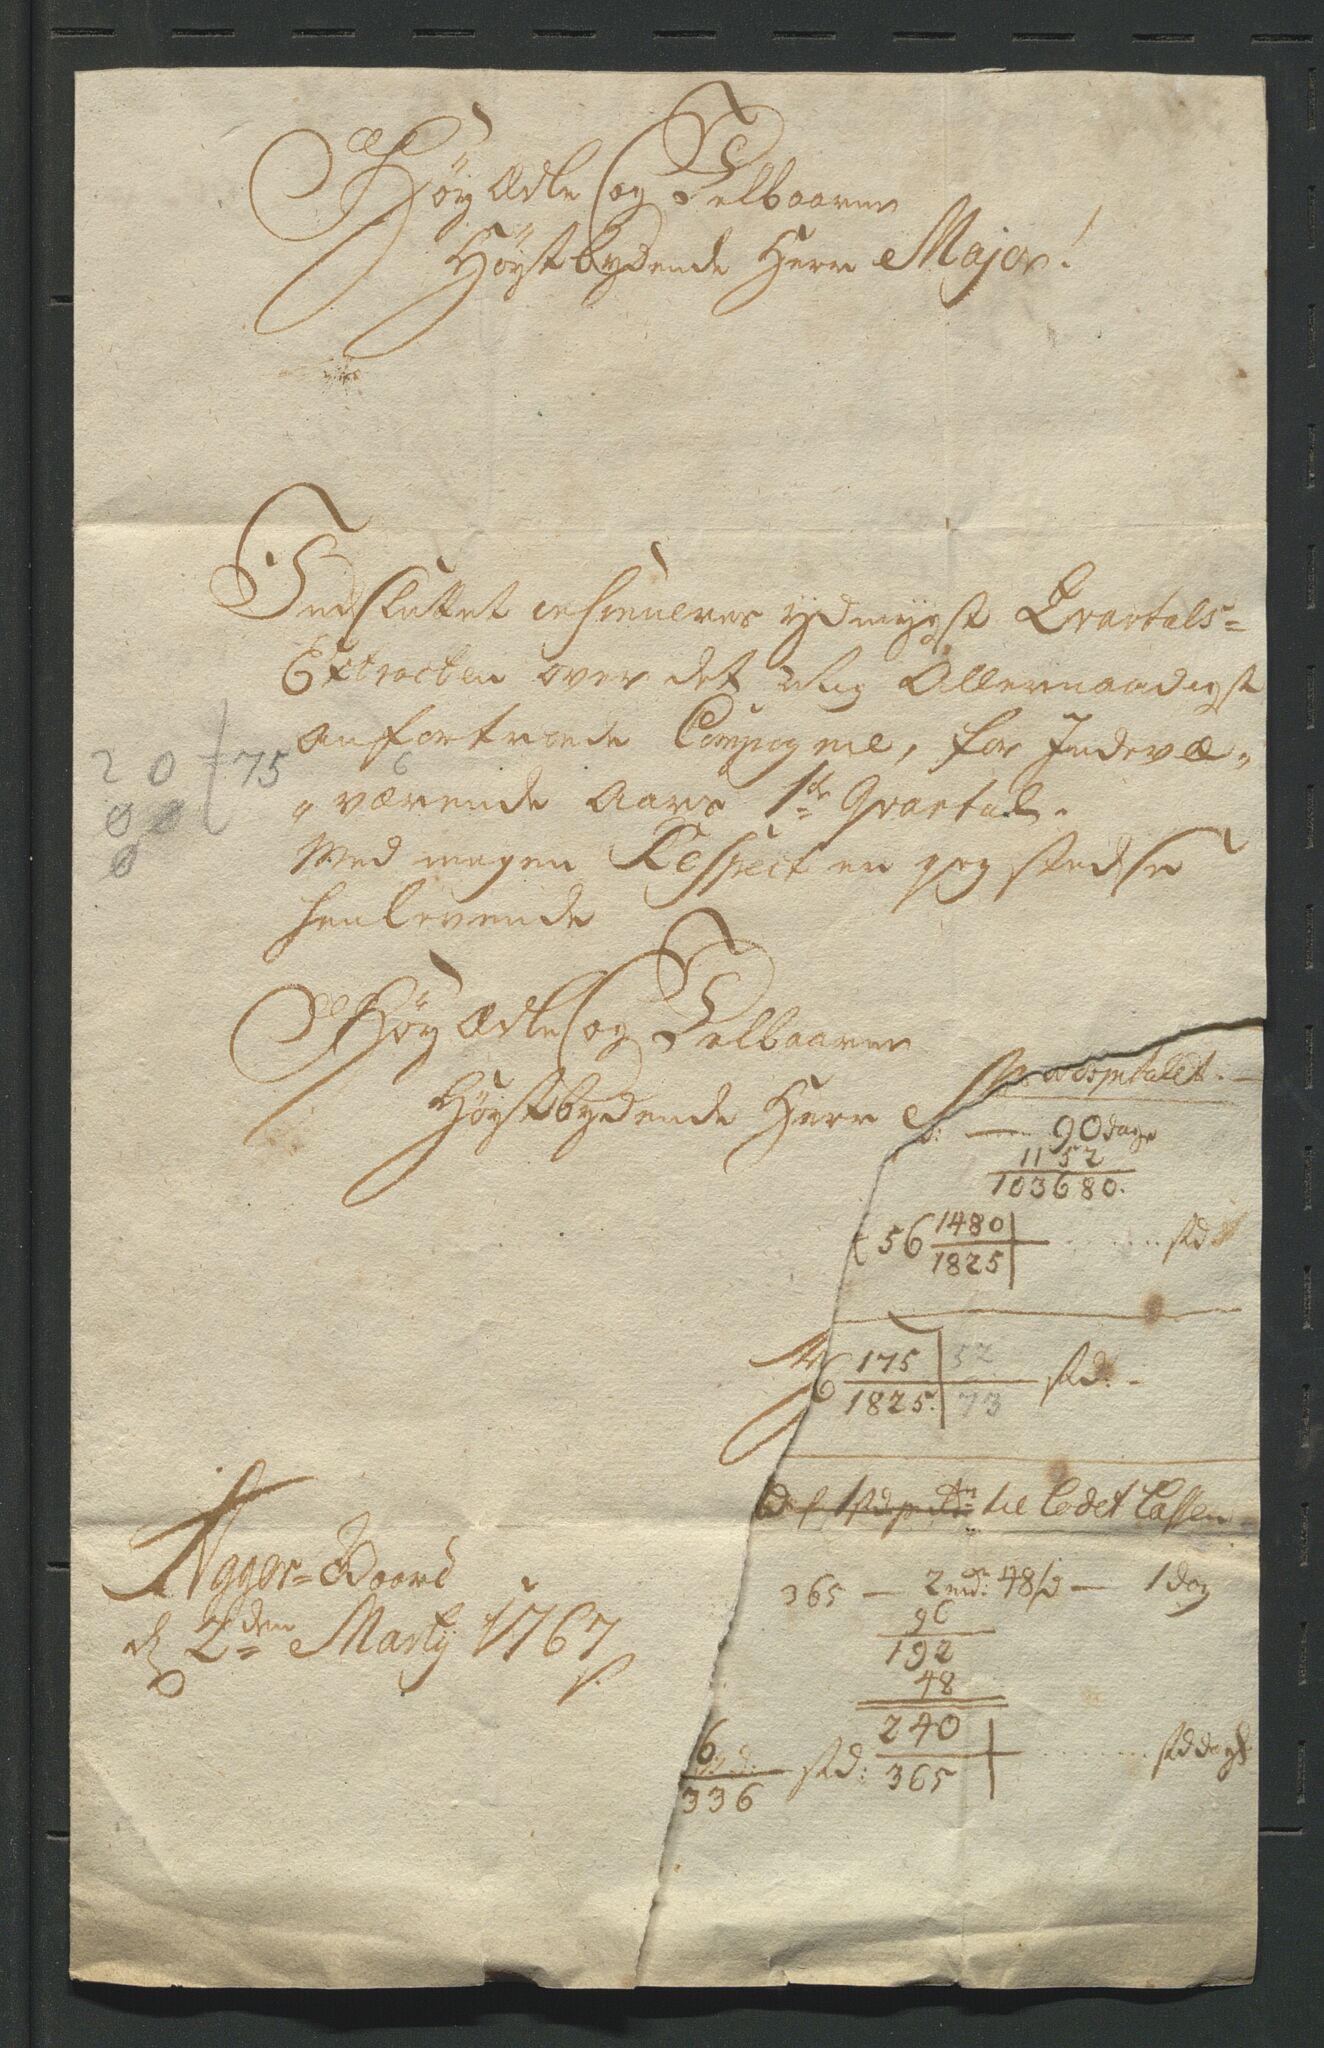 Høy Ædle og Velbaarne
Høystbydende Herr Major!
Indsluttet insinueres ydmygst Qvartals-
Extracten over det mig Allernaadigst
anfortroede Compagnie, for Indevæ-
værende Aars 1ste Qvartal.
Med megen Respect er jeg stedse
henlevende
Høy Ædle og Velbaarne
Høystbydende Herr
Agger-Gaard
d 2den Martij 1767
20 75
Hospitalet.
90 dage
1152
103680.
56 1480
1825
175 52
1825. 73
til Qvæst Cassen
365 — 2 48 s — 1 dag
96
192
48
240
365
336